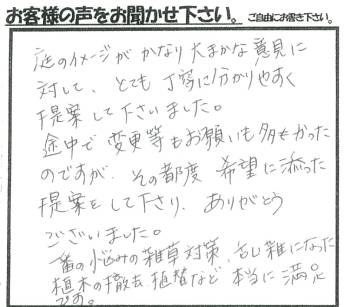 お客様の声をお聞かせ下さい。ご自由にお書き下さい。
庭のイメージがかなり大まかな意見に
対して、とても丁寧に分かりやすく
提案して下さいました。
途中で変更等もお願いも多かった
のですが、その都度希望に添った
提案をして下さり、ありがとう
ございました。
一番の悩みの雑草対策、古し雑になった
植木の撤去、植替など本当に満足
です。